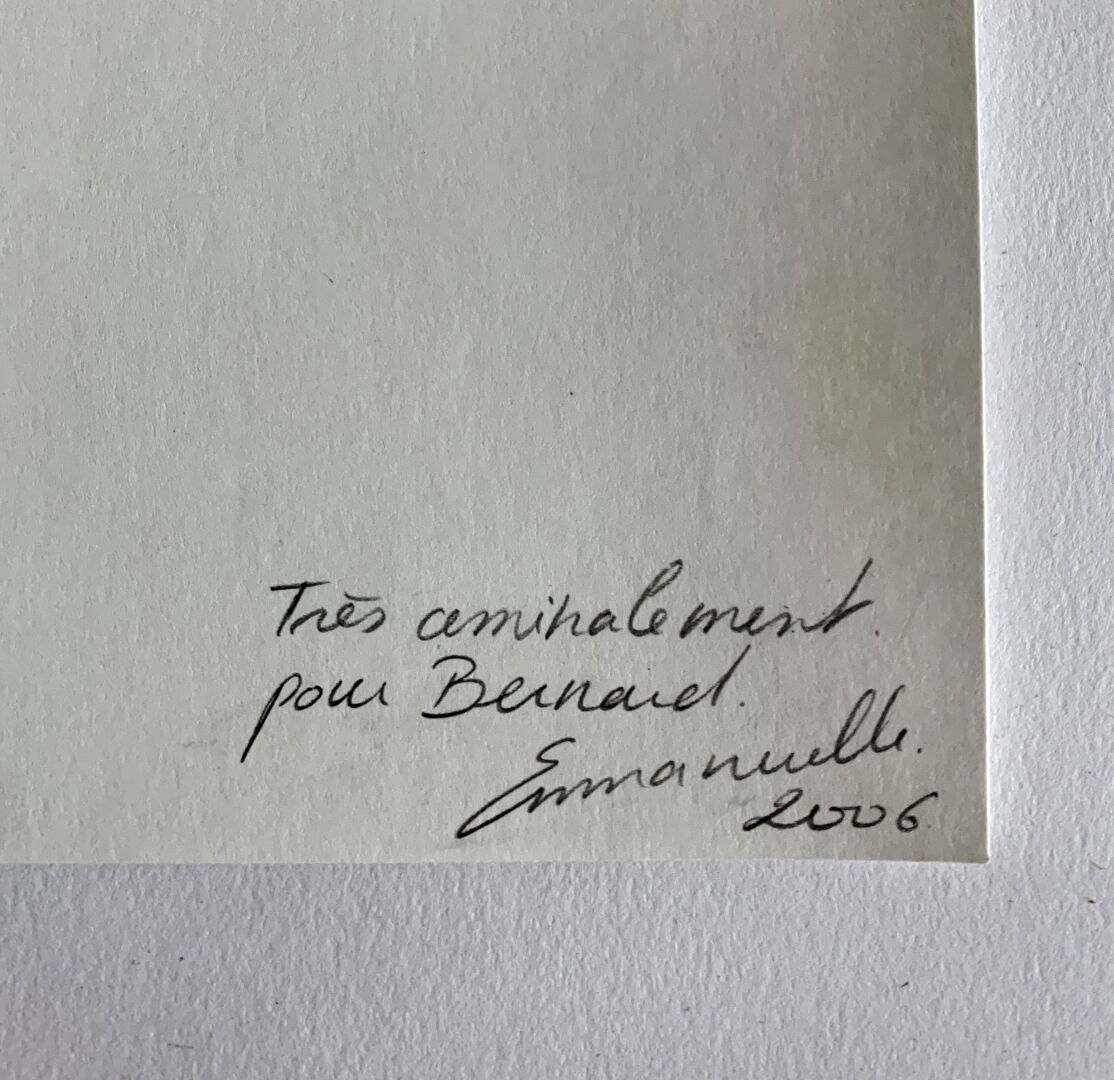 Très aminalement.
pour Bernard.
Emmanuelle.
2006.